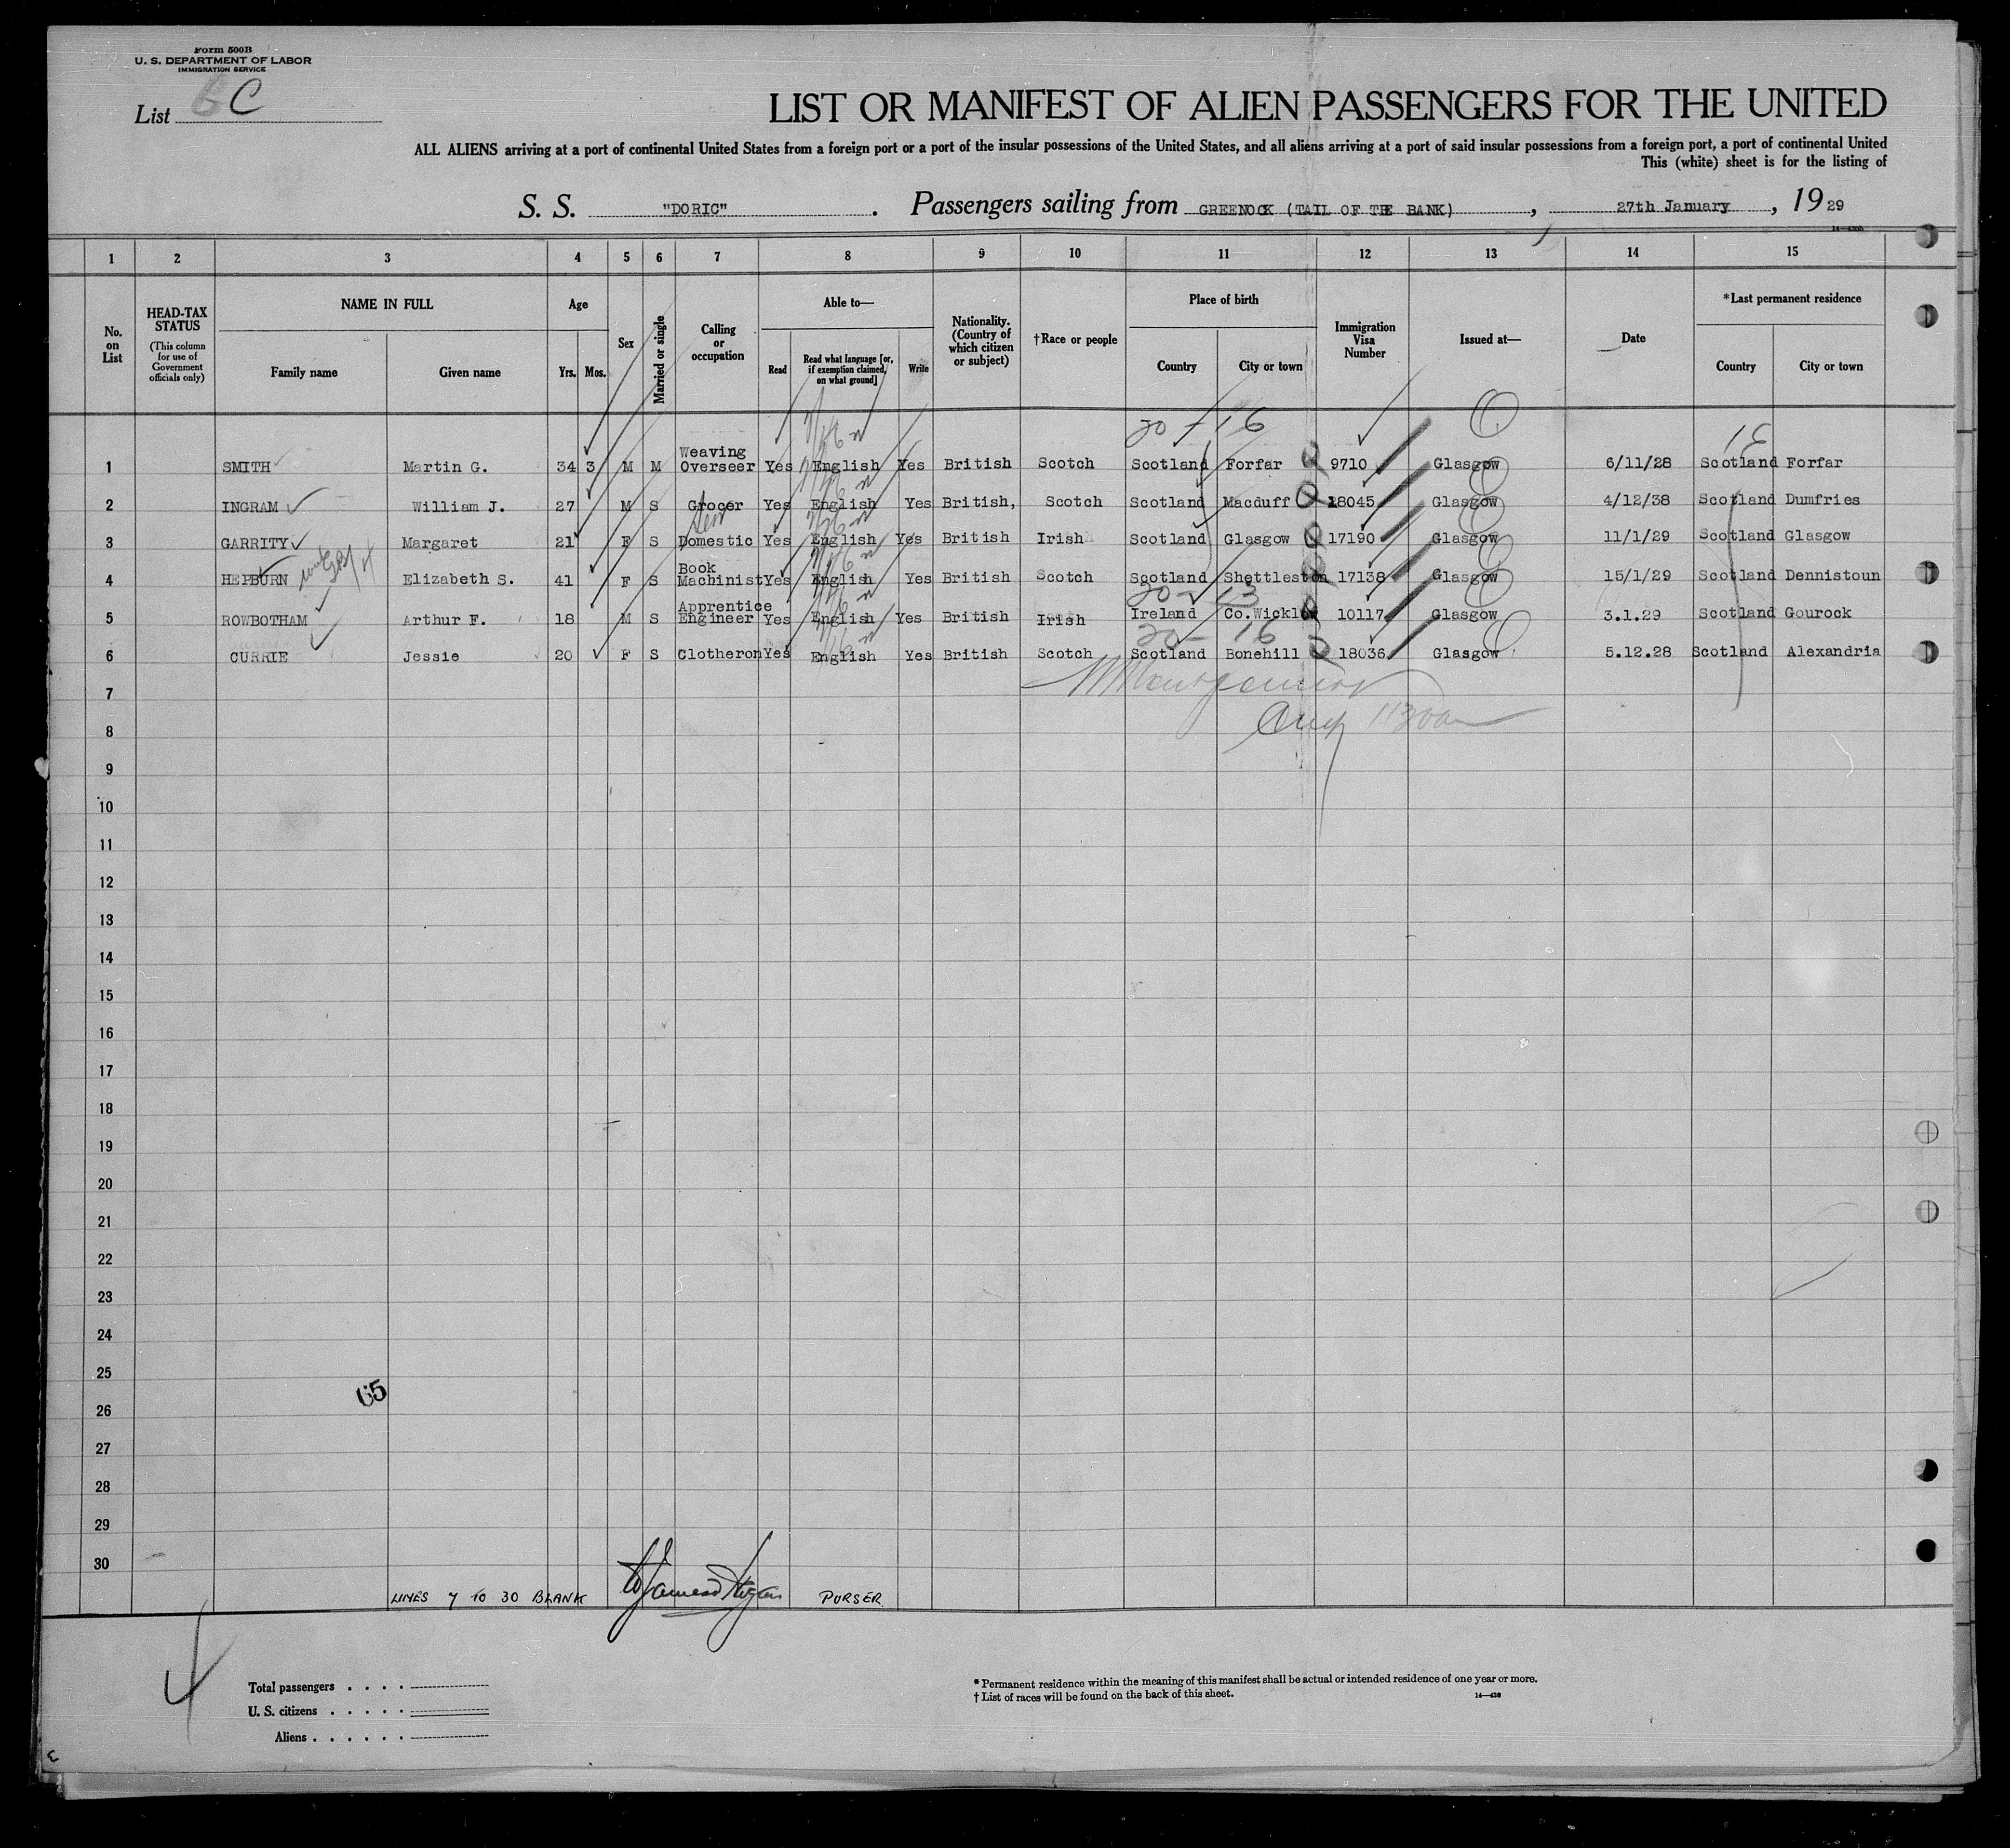 Form 500B
U. S. DEPARTMENT OF LABOR
IMMIGRATION SERVICE
List C
LIST OR MANIFEST OF ALIEN PASSENGERS FOR THE UNITED
ALL ALIENS arriving at a port of continental United States from a foreign port or a port of the insular possessions of the United States, and all aliens arriving at a port of said insular possessions from a foreign port, a port of continental United
This (white) sheet is for the listing of
S. S. "DORIC". Passengers sailing from GREENOCK (TAIL OF THE BANK), 27th January, 1929
1 2 3 4 5 6 7 8 9 10 11 12 13 14 15
No. on List
HEAD-TAX STATUS (This column for use of Government officials only)
NAME IN FULL
Family name Given name
Age
Yrs. Mos.
Sex
Married or single
Calling or occupation
Able to—
Read
Read what language [or, if exemption claimed, on what ground]
Write
Nationality. (Country of which citizen or subject)
†Race or people
Place of birth
Country City or town
Immigration Visa Number
Issued at—
Date
*Last permanent residence
Country City or town
20 - 16
16
1 SMITH Martin G. 34 3 M M Weaving Overseer Yes English Yes British Scotch Scotland Forfar 9710 Glasgow 6/11/28 Scotland Forfar
2 INGRAM William J. 27 M S Grocer Yes English Yes British, Scotch Scotland Macduff 18045 Glasgow 4/12/38 Scotland Dumfries
3 GARRITY Margaret 21 F S Domestic Yes English Yes British Irish Scotland Glasgow 17190 Glasgow 11/1/29 Scotland Glasgow
4 HEPBURN Elizabeth S. 41 F S Book Machinist Yes English Yes British Scotch Scotland Shettleston 17138 Glasgow 15/1/29 Scotland Dennistoun
20- 13
5 ROWBOTHAM Arthur F. 18 M S Apprentice Engineer Yes English Yes British Irish Ireland Co.Wicklow 10117 Glasgow 3.1.29 Scotland Gourock
20- 16
6 CURRIE Jessie 20 F S Clotheron Yes English Yes British Scotch Scotland Bonehill 18036 Glasgow 5.12.28 Scotland Alexandria
7
8
9
10
11
12
13
14
15
16
17
18
19
20
21
22
23
24
25
65
26
27
28
29
30
LINES 7 TO 30 BLANK PURSER
Total passengers
U. S. citizens
Aliens
* Permanent residence within the meaning of this manifest shall be actual or intended residence of one year or more.
† List of races will be found on the back of this sheet.
14—430